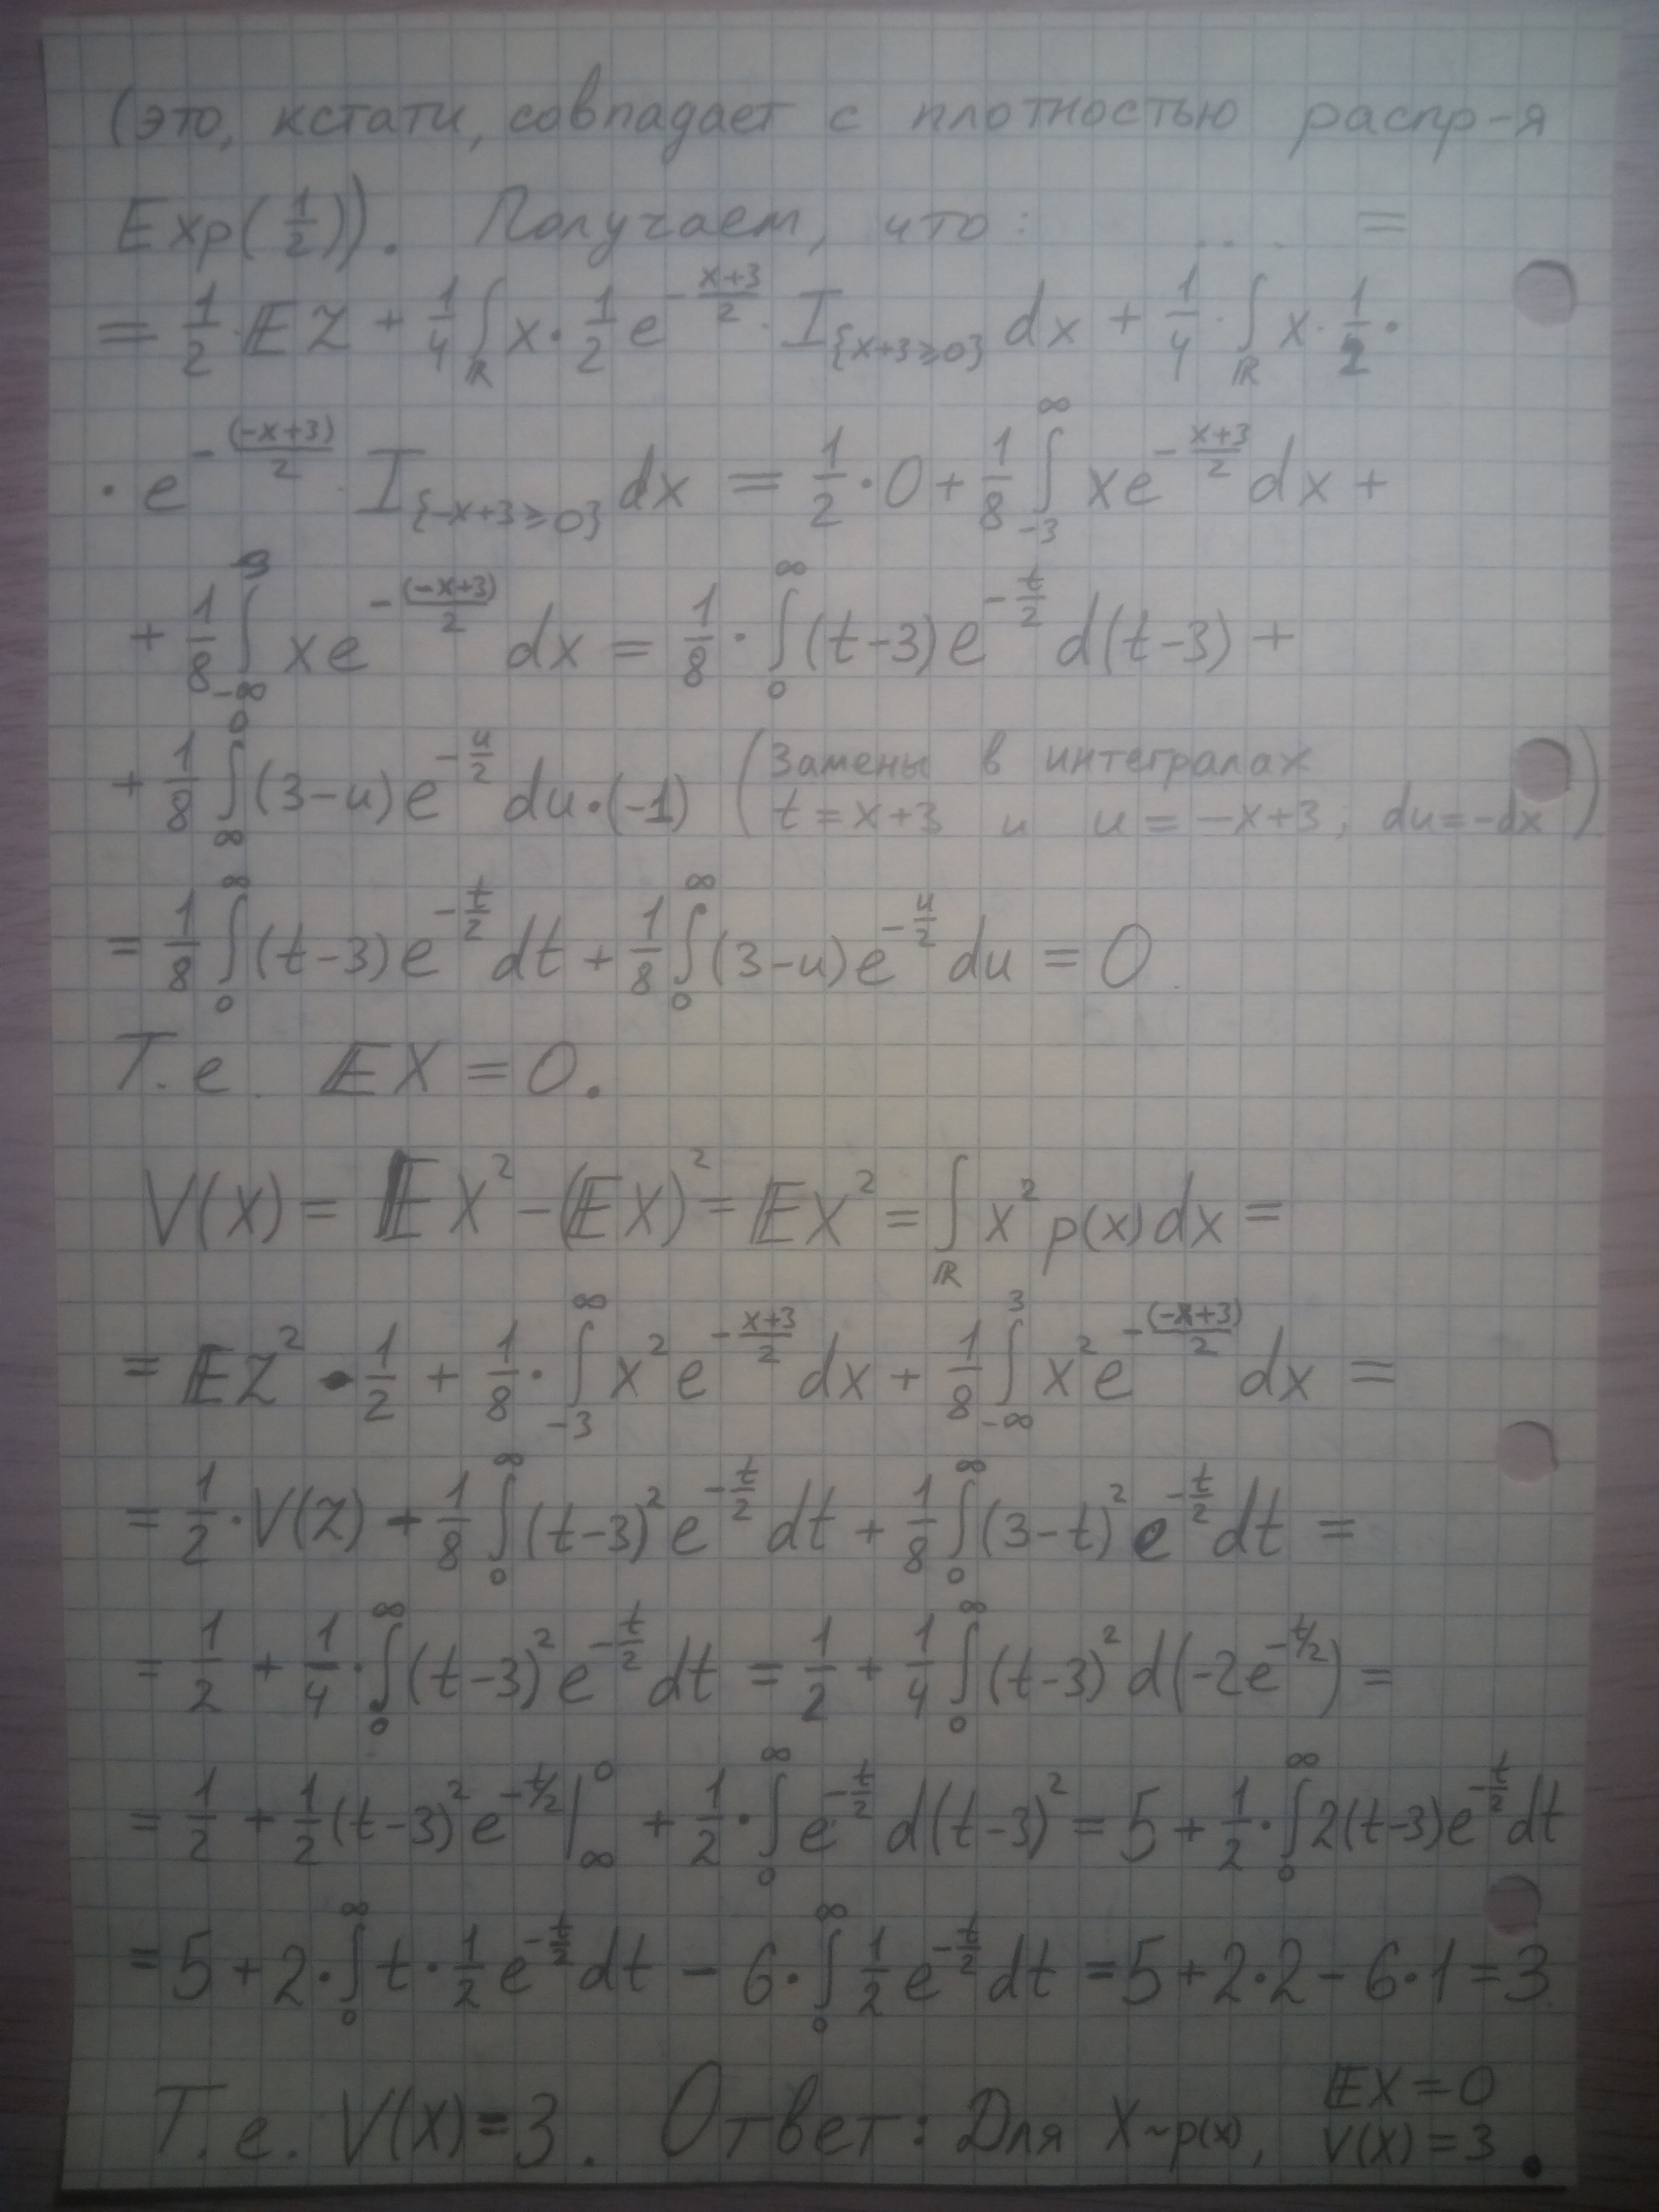 (это, кстати, совпадает с плотностью распр-я
Exp(1/2)). Получаем, что: ... =
= 1/2 · 𝔼Z + 1/4 ∫_ℝ x · 1/2 e^{-(x+3)/2} · I_{{x+3≥0}} dx + 1/4 · ∫_ℝ x · 1/2 ·
· e^{-(-x+3)/2} · I_{{-x+3≥0}} dx = 1/2 · 0 + 1/8 ∫_{-3}^{∞} x e^{-(x+3)/2} dx +
+ 1/8 ∫_{-∞}^{3} x e^{-(-x+3)/2} dx = 1/8 · ∫_0^∞ (t-3) e^{-t/2} d(t-3) +
+ 1/8 ∫_∞^0 (3-u) e^{-u/2} du · (-1) (Замены в интегралах
t = x+3 и u = -x+3; du = -dx)
= 1/8 ∫_0^∞ (t-3) e^{-t/2} dt + 1/8 ∫_0^∞ (3-u) e^{-u/2} du = 0.
Т.е. 𝔼X = 0.
V(X) = 𝔼X² - (𝔼X)² = 𝔼X² = ∫_ℝ x² p(x) dx =
= 𝔼Z² · 1/2 + 1/8 · ∫_{-3}^{∞} x² e^{-(x+3)/2} dx + 1/8 ∫_{-∞}^{3} x² e^{-(-x+3)/2} dx =
= 1/2 · V(Z) + 1/8 ∫_0^∞ (t-3)² e^{-t/2} dt + 1/8 ∫_0^∞ (3-t)² e^{-t/2} dt =
= 1/2 + 1/4 · ∫_0^∞ (t-3)² e^{-t/2} dt = 1/2 + 1/4 ∫_0^∞ (t-3)² d(-2e^{-t/2}) =
= 1/2 + 1/2 (t-3)² e^{-t/2} |_∞^0 + 1/2 · ∫_0^∞ e^{-t/2} d(t-3)² = 5 + 1/2 · ∫_0^∞ 2(t-3) e^{-t/2} dt
= 5 + 2 · ∫_0^∞ t · 1/2 e^{-t/2} dt - 6 · ∫_0^∞ 1/2 e^{-t/2} dt = 5 + 2·2 - 6·1 = 3
Т.е. V(X) = 3. Ответ: Для X~p(x), 𝔼X = 0
V(X) = 3.